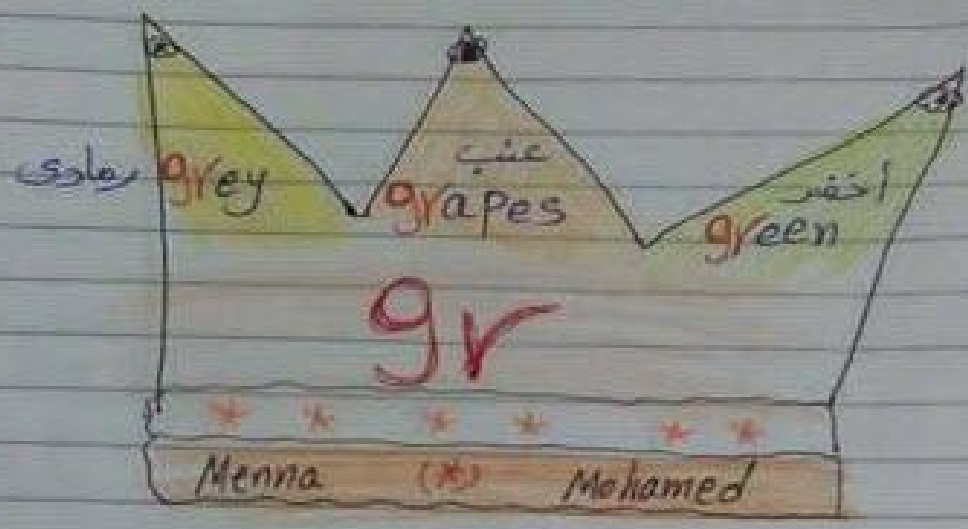 عنب
رمادى grey
grapes
أخضر
green
gr
* * * * * *
Menna (*) Mohamed